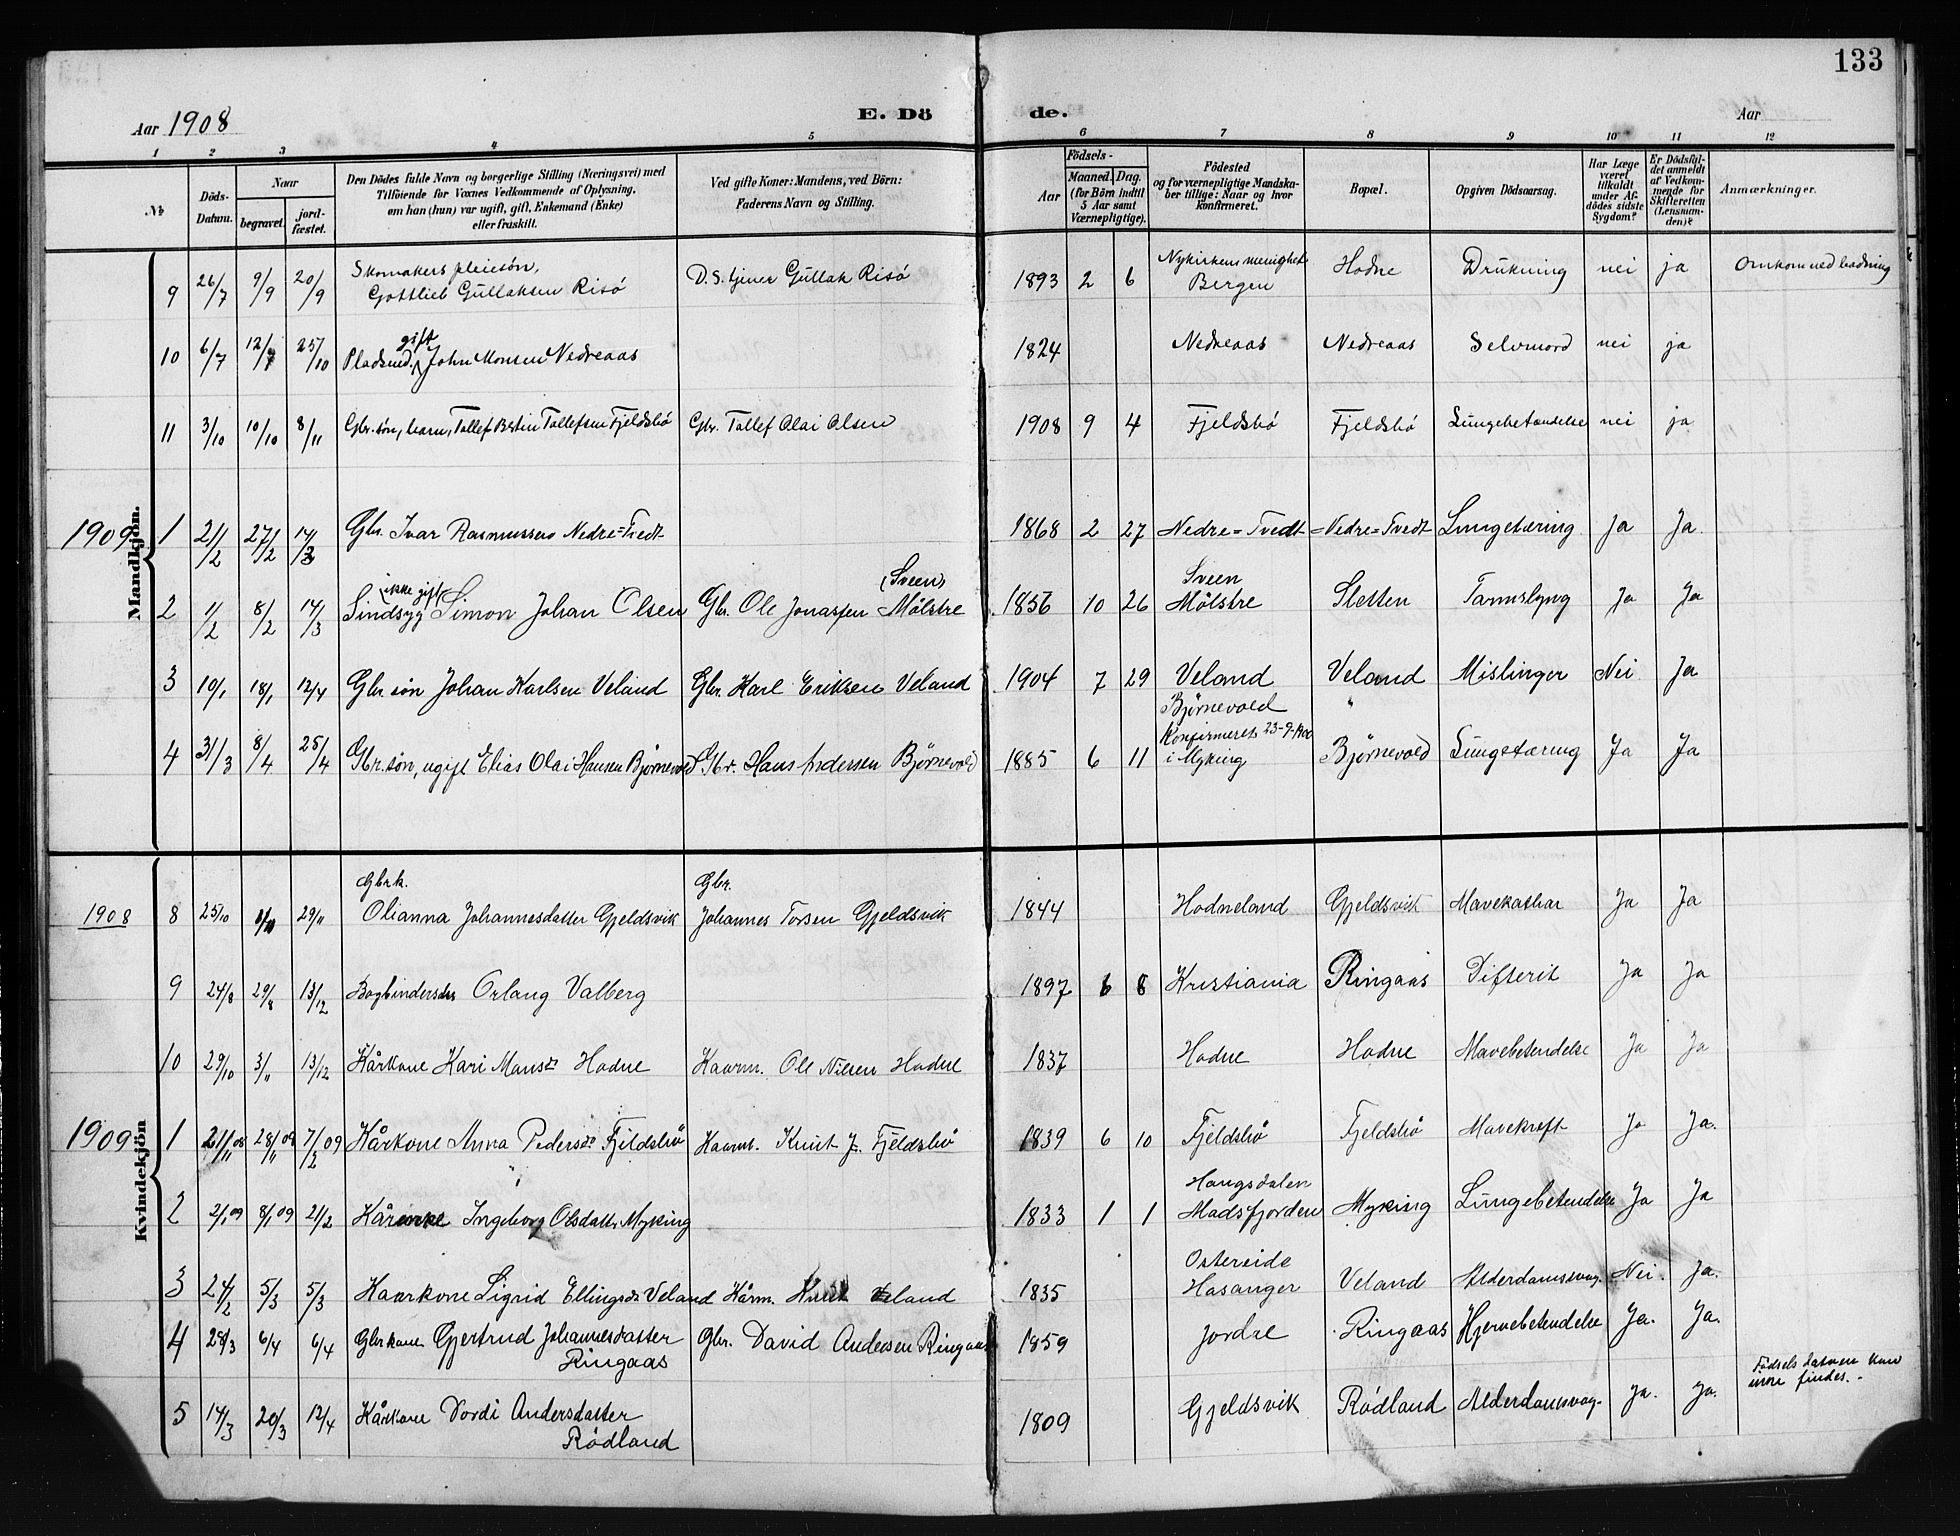 133
Aar 1908
E. Dö
de.
Aar
1 2 3 4 5 6 7 8 9 10 11 12
№
Döds-Datum.
Naar
begravet.
jord-fæstet.
Den Dödes fulde Navn og borgerlige Stilling (Næringsvei) med
Tilföiende for Voxnes Vedkommende af Oplysning,
om han (hun) var ugift, gift, Enkemand (Enke)
eller fraskilt.
Ved gifte Koner: Mandens, ved Börn:
Faderens Navn og Stilling.
Födsels-
Aar
Maaned. Dag.
(for Börn indtil
5 Aar samt
Værnepligtige).
Födested
og for værnepligtige Mandska-
ber tillige: Naar og hvor
konfirmeret.
Bopæl.
Opgiven Dödsaarsag.
Har Læge
været
tilkaldt
under Af-
dödes sidste
Sygdom?
Er Dödsfal-
det anmeldt
af Vedkom-
mende for
Skifteretten
(Lensman-
den)?
Anmærkninger.
Mandkjön.
9 26/7 9/9 20/9 Skomakers pleiesøn, Gottlieb Gullaksen Risö D.S. tjener Gullak Risö 1893 2 6 Nykirkens menighet Bergen Hodne Drukning nei ja Omkom ved badning
10 6/7 12/7 25/10 Pladsmd. gift John Monsen Nedreaas 1824 Nedreaas Nedreaas Selvmord nei ja
11 3/10 10/10 8/11 Gbr. søn, barn, Tollef Bertin Tollefsen Fjeldsbö Gbr. Tollef Olai Olsen 1908 9 4 Fjeldsbö Fjeldsbö Lungebetændelse nei ja
1909 1 21/2 27/2 14/3 Gbr. Ivar Rasmussen Nedre=Tvedt 1868 2 27 Nedre=Tvedt Nedre=Tvedt Lungetæring Ja Ja.
2 1/2 8/2 14/3 Sindsyg (ikke gift) Simon Johan Olsen Gbr. Ole Jonassen Mölstre (Sveen) 1856 10 26 Sveen Mölstre Sletten Tarmslyng Ja Ja
3 10/1 18/1 12/4 Gbr søn Johan Karlsen Veland Gbr. Karl Eriksen Veland 1904 7 29 Veland Veland Mislinger Nei Ja
4 31/3 8/4 25/4 Gbr. søn, ugift Elias Olai Hansen Björnevold Gbr. Hans Andersen Björnevold 1885 6 11 Björnevold Konfirmeret 23-9-1900 i Myking " Björnevold Lungetæring Ja Ja
Kvindekjön
1908 8 25/10 29/11 Gbrk. Olianna Johannesdatter Gjeldsvik Gbr. Johannes Torsen Gjeldsvik 1844 Hodneland Gjeldsvik Mavekathar Ja Ja
9 24/8 29/8 13/12 Bogbinders Orlaug Valberg 1897 6 8 Kristiania Ringaas Difterit Ja Ja
10 29/10 3/11 13/12 Kårkone Kari Mons Hodne Kaarm. Ole Nilsen Hodne 1837 Hodne Hodne Mavebetendelse Ja Ja
1909 1 21/11 08 28/11 09 7/2 09 Kårkone Anna Peders Fjeldsbö Kaarm. Knut J. Fjeldsbö 1839 6 10 Fjeldsbö Fjeldsbö Mavekreft Ja Ja.
2 2/1 09 8/1 09 21/2 Kårenke Ingeborg Olsdatter Myking 1833 1 1 Haugsdalen Madsfjorden Myking Lungebetendelse Ja Ja
3 24/2 5/3 5/3 Kaarkone Sigrid Ellingsdr Veland Kårm. Knut Veland 1835 Ostereide Hosanger Veland Alderdomssvag. Nei. Ja.
4 28/3 6/4 6/4 Gbrkone Gjertrud Johannesdatter Ringaas Gbr. David Andersen Ringaas 1859 Jordre Ringaas Hjernebetendelse Ja. Ja.
5 14/3 20/3 12/4 Kårkone Dordi Andersdatter Rödland 1809 Gjeldsvik Rödland Alderdomssvag. Ja. Ja. Födsels datoen kan findes.